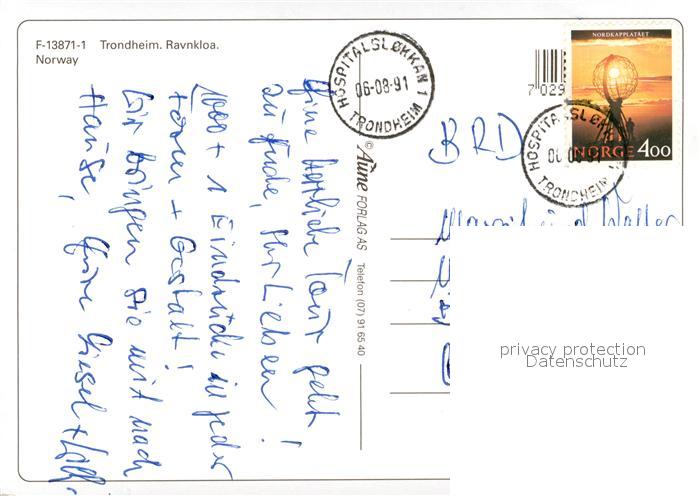 F-13871-1 Trondheim. Ravnkloa.
Norway
HOSPITALSLØKKAN 1
06-08-91
TRONDHEIM
NORDKAPPLATÅET
NORGE 400
7 029
HOSPITALSLØKKAN 1
06-08-91
TRONDHEIM
© Aune FORLAG AS Telefon (07) 91 65 40
BRD
Eine herrliche Tour geht
zu Ende, Ihr Lieben!
1000 + 1 Eindrücke in jeder
Form + Gestalt!
Wir bringen sie mit nach
Hause,
privacy protection
Datenschutz